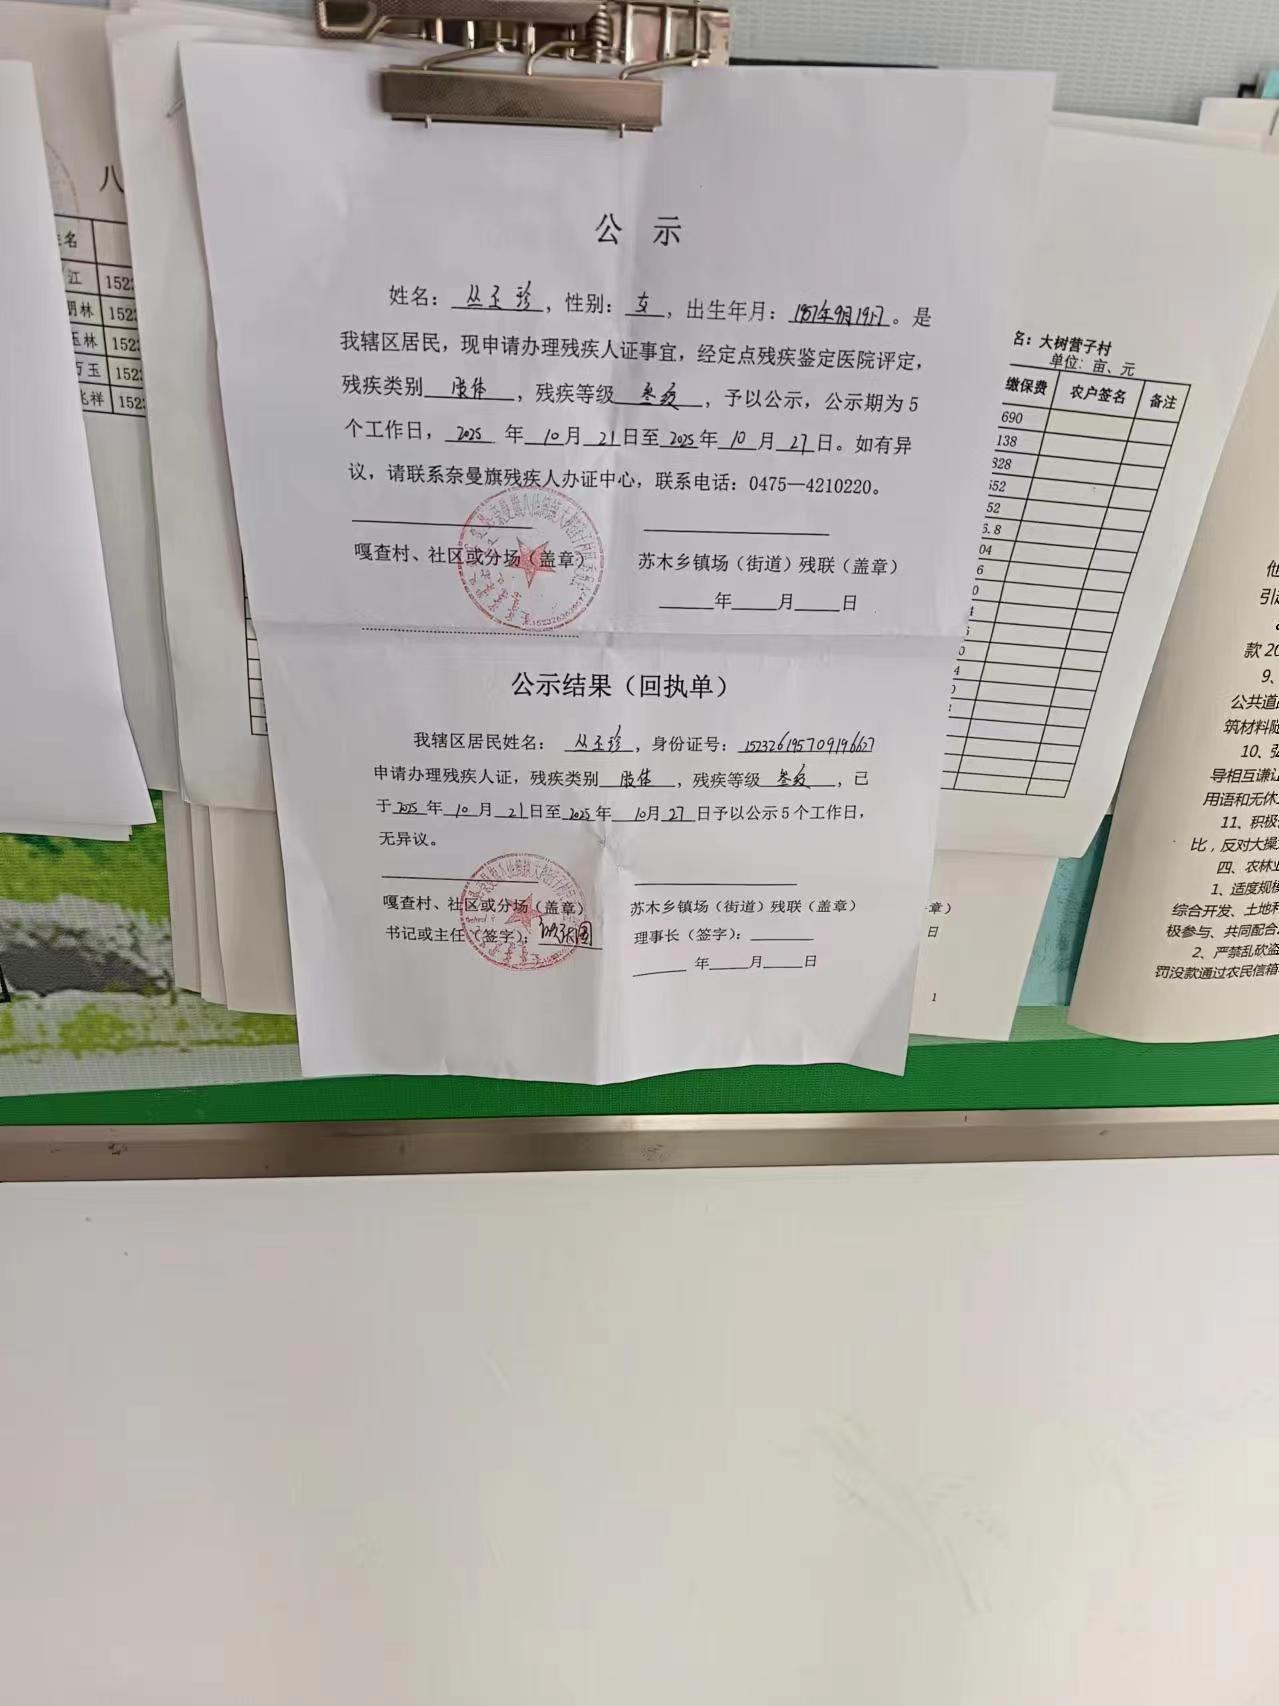 公 示
姓名：丛玉珍，性别：女，出生年月：1957年9月19日。是
我辖区居民，现申请办理残疾人证事宜，经定点残疾鉴定医院评定，
残疾类别 肢体，残疾等级 叁级，予以公示，公示期为5
个工作日，2025 年 10 月 21 日至 2025 年 10 月 27 日。如有异
议，请联系奈曼旗残疾人办证中心，联系电话：0475—4210220。
嘎查村、社区或分场（盖章）
苏木乡镇场（街道）残联（盖章）
年 月 日
公示结果（回执单）
我辖区居民姓名：丛玉珍，身份证号：152326195709196627
申请办理残疾人证，残疾类别 肢体，残疾等级 叁级，已
于 2025 年 10 月 21 日至 2025 年 10 月 27 日予以公示5个工作日，
无异议。
嘎查村、社区或分场（盖章）
苏木乡镇场（街道）残联（盖章）
书记或主任（签字）：
理事长（签字）：
年 月 日
八
名
江 1522
明林 1522
玉林 152
万玉 152
兆祥 152
名：大树营子村
单位：亩、元
缴保费 农户签名 备注
690
138
328
552
52
5.8
04
6
0
章）
日
1
他
引起
款20
9、
公共道
筑材料随
10、弘
导相互谦让
用语和无休
11、积极
比，反对大操
四、农林业
1、适度规模
综合开发、土地利
极参与、共同配合
2、严禁乱砍盗
罚没款通过农民信箱